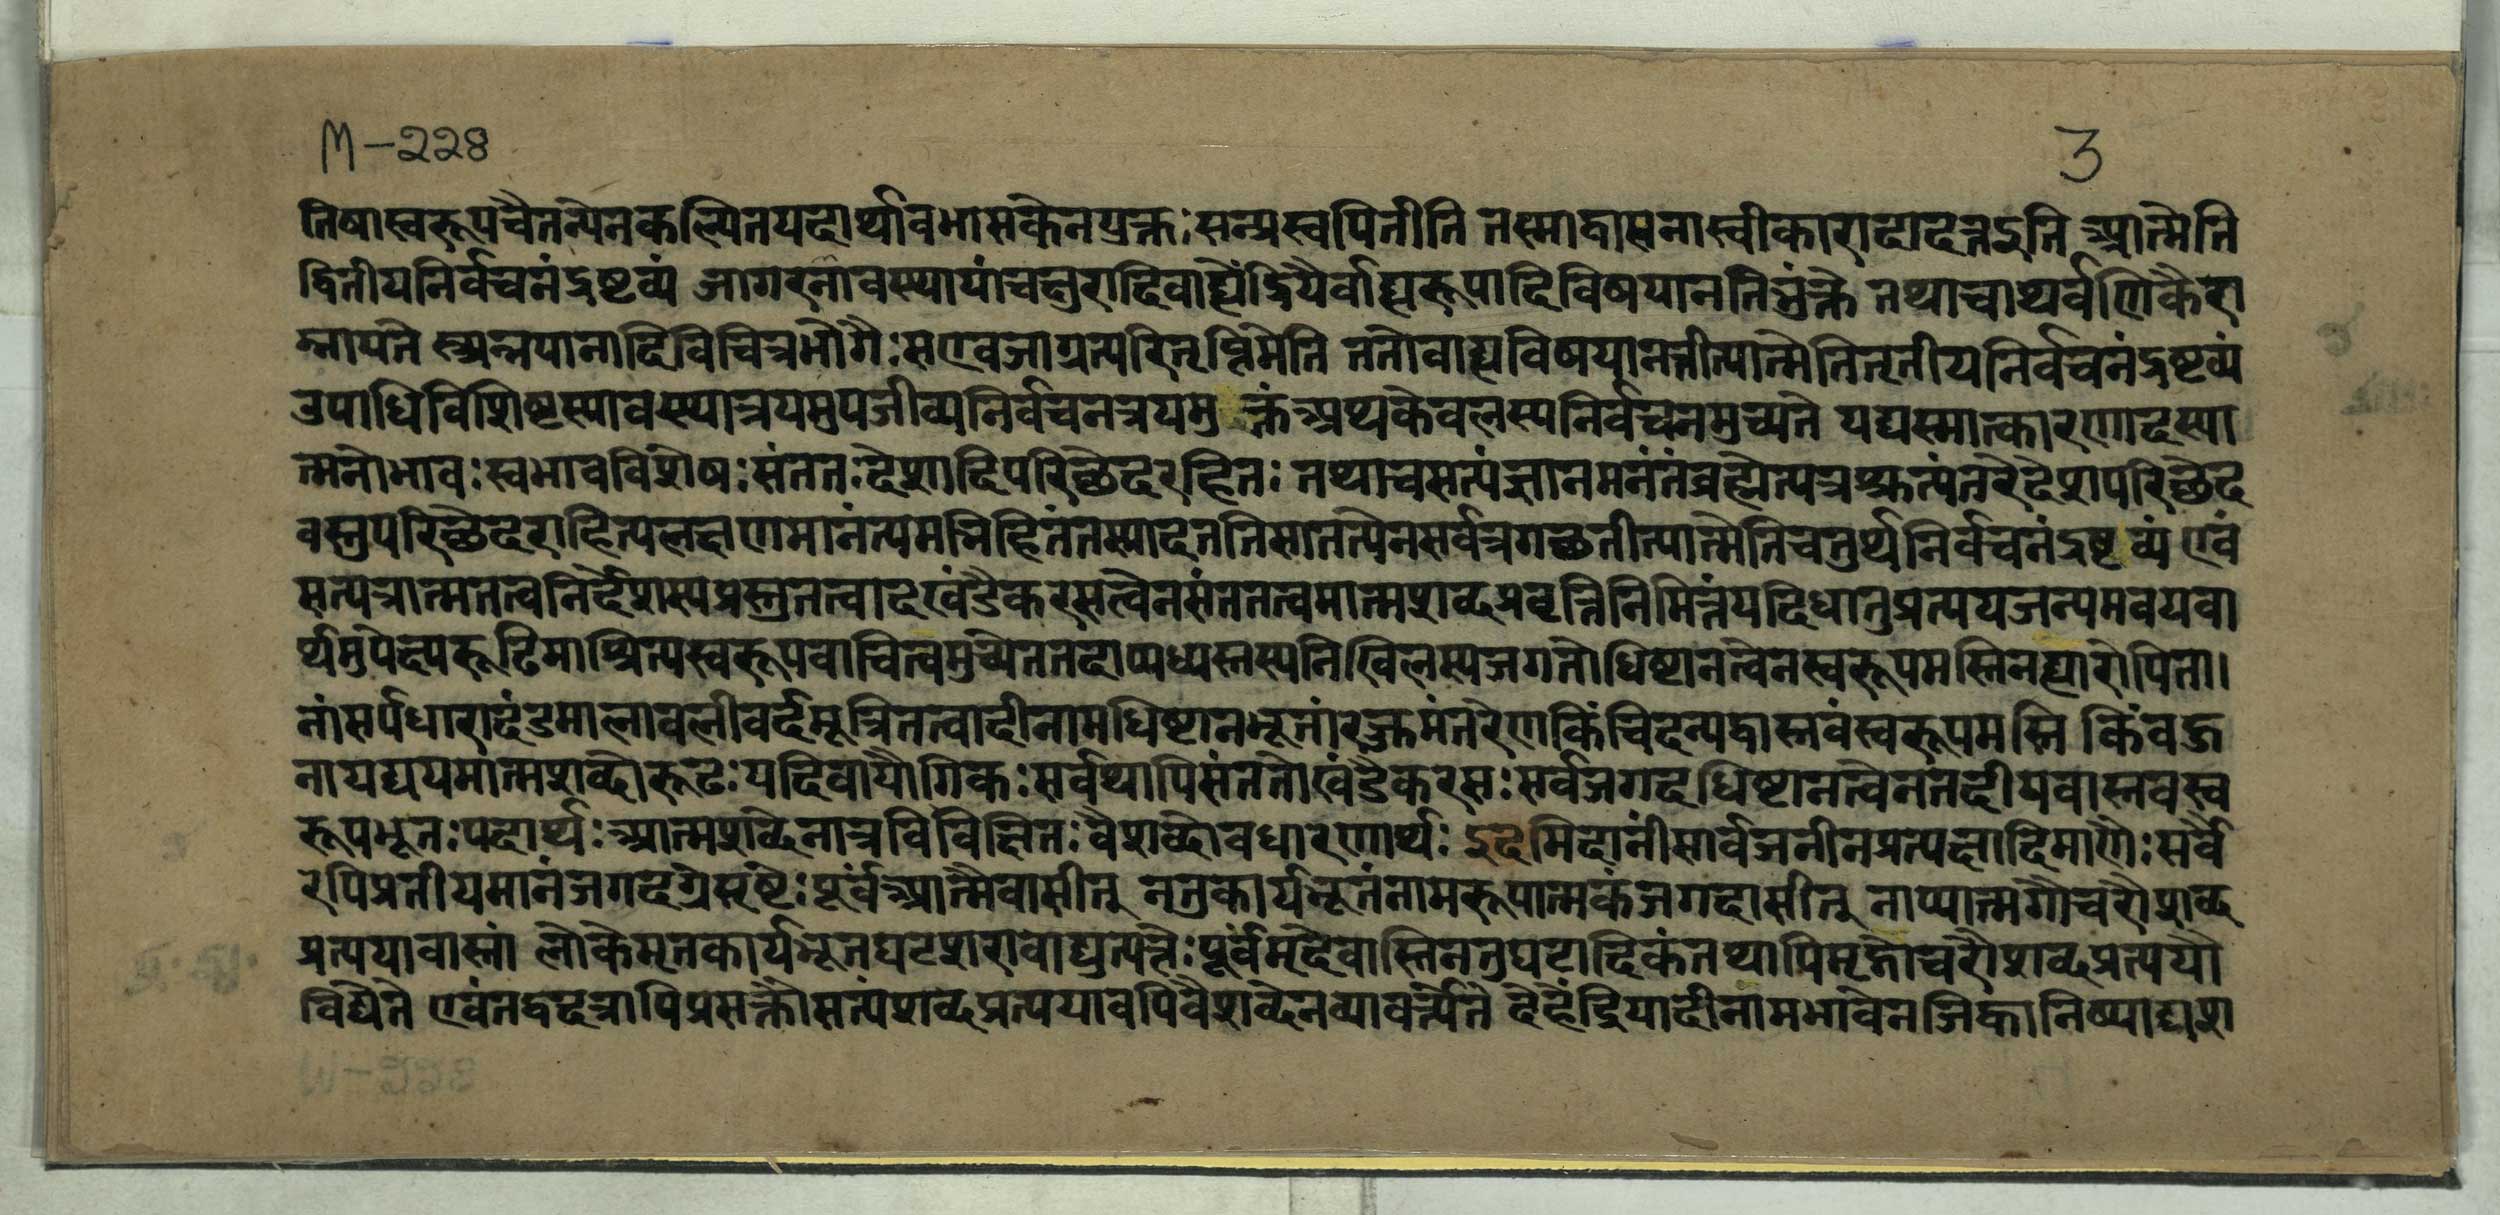 M-२२४
3
तिषास्वरूपचैतन्येनकल्पितपदार्थावभासकेनयुक्तः सन्प्रस्वपितीति तस्माद्वासनास्वीकारादादत्तइति आत्मेति
द्वितीयनिर्वचनंद्रष्टव्यं जागरनावस्थायांचक्षुरादिबाह्येंद्रियैर्बाह्यरूपादिविषयानत्तिभुंक्ते तथाचाथर्वणिकैरा
म्नायते स्त्र्यन्नपानादिविचित्रभोगैः सएवजाग्रत्परितृप्तिमेति ततोबाह्यविषयानत्तीत्यात्मेतितृतीयनिर्वचनंद्रष्टव्यं
उपाधिविशिष्टस्यावस्थात्रयमुपजीव्यनिर्वचनत्रयमु क्तं अथकेवलस्यनिर्वचनमुच्यते यद्यस्मात्कारणादस्या
त्मनोभावः स्वभावविशेषः संततः देशादिपरिछेदरहितः तथाचसत्यंज्ञानमनंतंब्रह्मेत्यत्रश्रुत्यंतरेदेशपरिछेद
वस्तुपरिछेदराहित्यलक्षणमानंत्यमभिहितंतस्मादततिसातत्येनसर्वत्रगच्छतीत्यात्मेतिचतुर्थनिर्वचनंद्रष्ट व्यं एवं
सत्यत्रात्मतत्वनिर्देशस्यप्रस्तुतत्वादखंडैकरसत्वेनसंततत्वमात्मशब्दप्रवृत्तिनिमित्तंयदिधातुप्रत्ययजन्यमवयवा
र्थमुपेक्ष्यरूढिमाश्रित्यस्वरूपवाचित्वमुच्येततदाप्यध्यस्तस्यनिखिलस्यजगतोधिष्टानत्वेनस्वरूपमस्तिनह्यारोपिता।
नांसर्पधारादंडमालाबलीवर्दमूत्रितत्वादीनामधिष्टानभूतांरज्जुमंतरेणकिंचिदन्यद्वास्तवंस्वरूपमस्ति किंबहु
नायद्ययमात्मशब्दोरूढः यदिवायौगिकः सर्वथापिसंततोखंडैकरसः सर्वजगदधिष्टानत्वेनतदीयवास्तवस्व
रूपभूतः पदार्थः आत्मशब्देनात्रविवक्षितः वैशब्दोवधारणार्थः इदमिदानींसार्वजनीनप्रत्यक्षादिमाणैः सर्वै
रपिप्रतीयमानंजगदग्रेसृष्टेः पूर्वंआत्मैवासीत् नतुकार्यभूतंनामरूपात्मकंजगदासीत् नाप्यात्मगोचरौशब्द
प्रत्ययावास्तां लोकेमृतकार्यभूतघटशरावाद्युत्पत्तेः पूर्वंमृदेवास्तिनतुघटादिकंतथापिमृद्गोचरौशब्दप्रत्ययौ
विद्येते एवंतद्वदत्रापिप्रसक्तौसत्यंशब्दप्रत्ययावपिवैशब्देनव्यावर्त्येते देहेंद्रियादीनामभावेनजिह्वानिष्पाद्यश